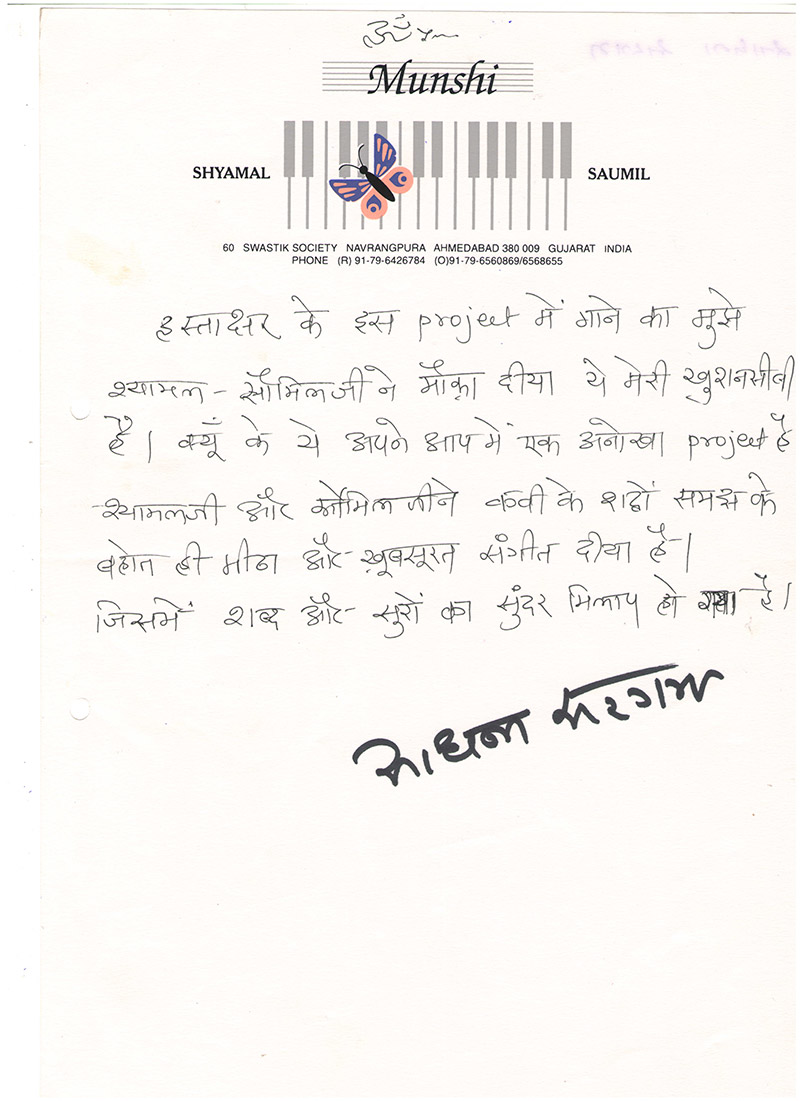 Munshi
SHYAMAL SAUMIL
60 SWASTIK SOCIETY NAVRANGPURA AHMEDABAD 380 009 GUJARAT INDIA
PHONE (R) 91-79-6426784 (O)91-79-6560869/6568655
हस्ताक्षर के इस project में गाने का मुझे
श्यामल - सौमिलजी ने मौक़ा दीया ये मेरी खुशनसीबी
है। क्यूँ के ये अपने आप में एक अनोखा project है
श्यामलजी और सौमिलजीने कवी के शब्दों समझ के
बहोत ही मीठा और ख़ूबसूरत संगीत दीया है।
जिसमें शब्द और सुरों का सुंदर मिलाप हो गया है।
साधना सरगम